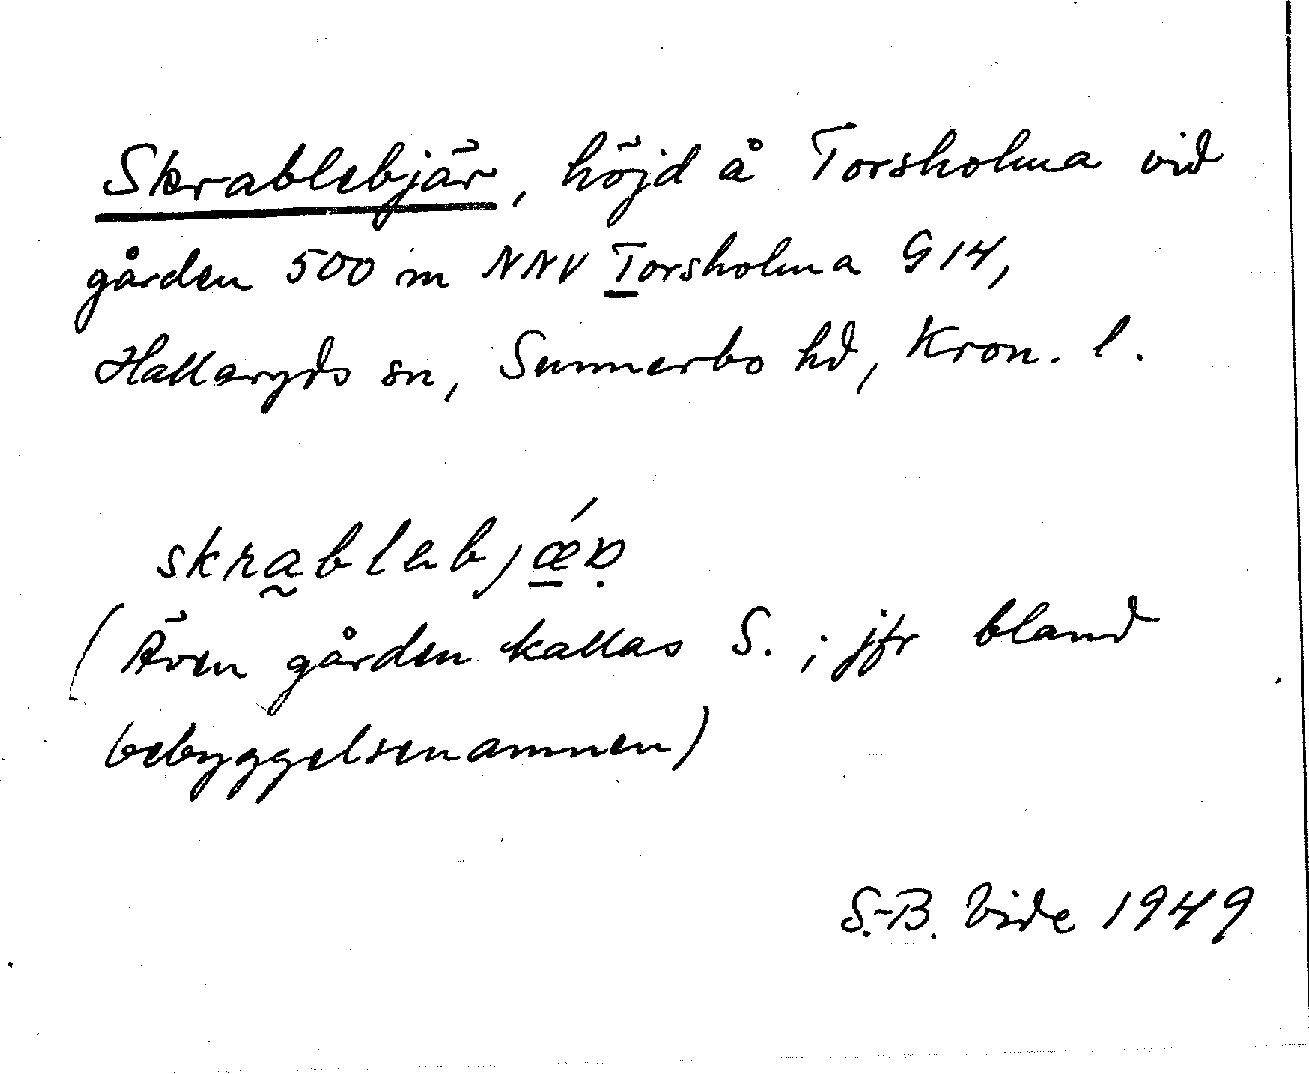 Skrablebjär, höjd å Torsholma vid
gården 500 m NNV Torsholma G 14,
Hallaryds sn, Sunnerbo hd, Kron. l.
skra̰blebjǽ̲ṛ
(Även gården kallas S. ; jfr bland
bebyggelsenamnen)
S.-B. Vide 1949